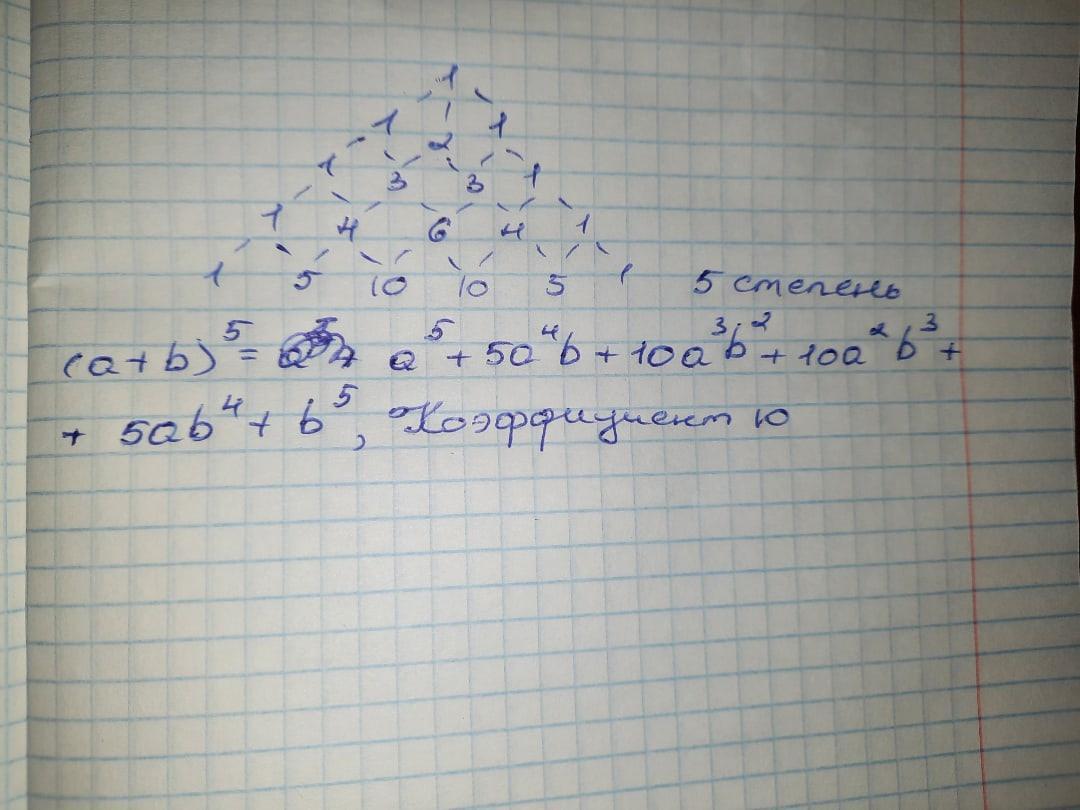 1
1 1
1 2 1
1 3 3 1
1 4 6 4 1
1 5 10 10 5 1 5 степень
(a+b)⁵= a⁵+5a⁴b+10a³b²+10a²b³+
+ 5ab⁴+b⁵, Коэффициент 10